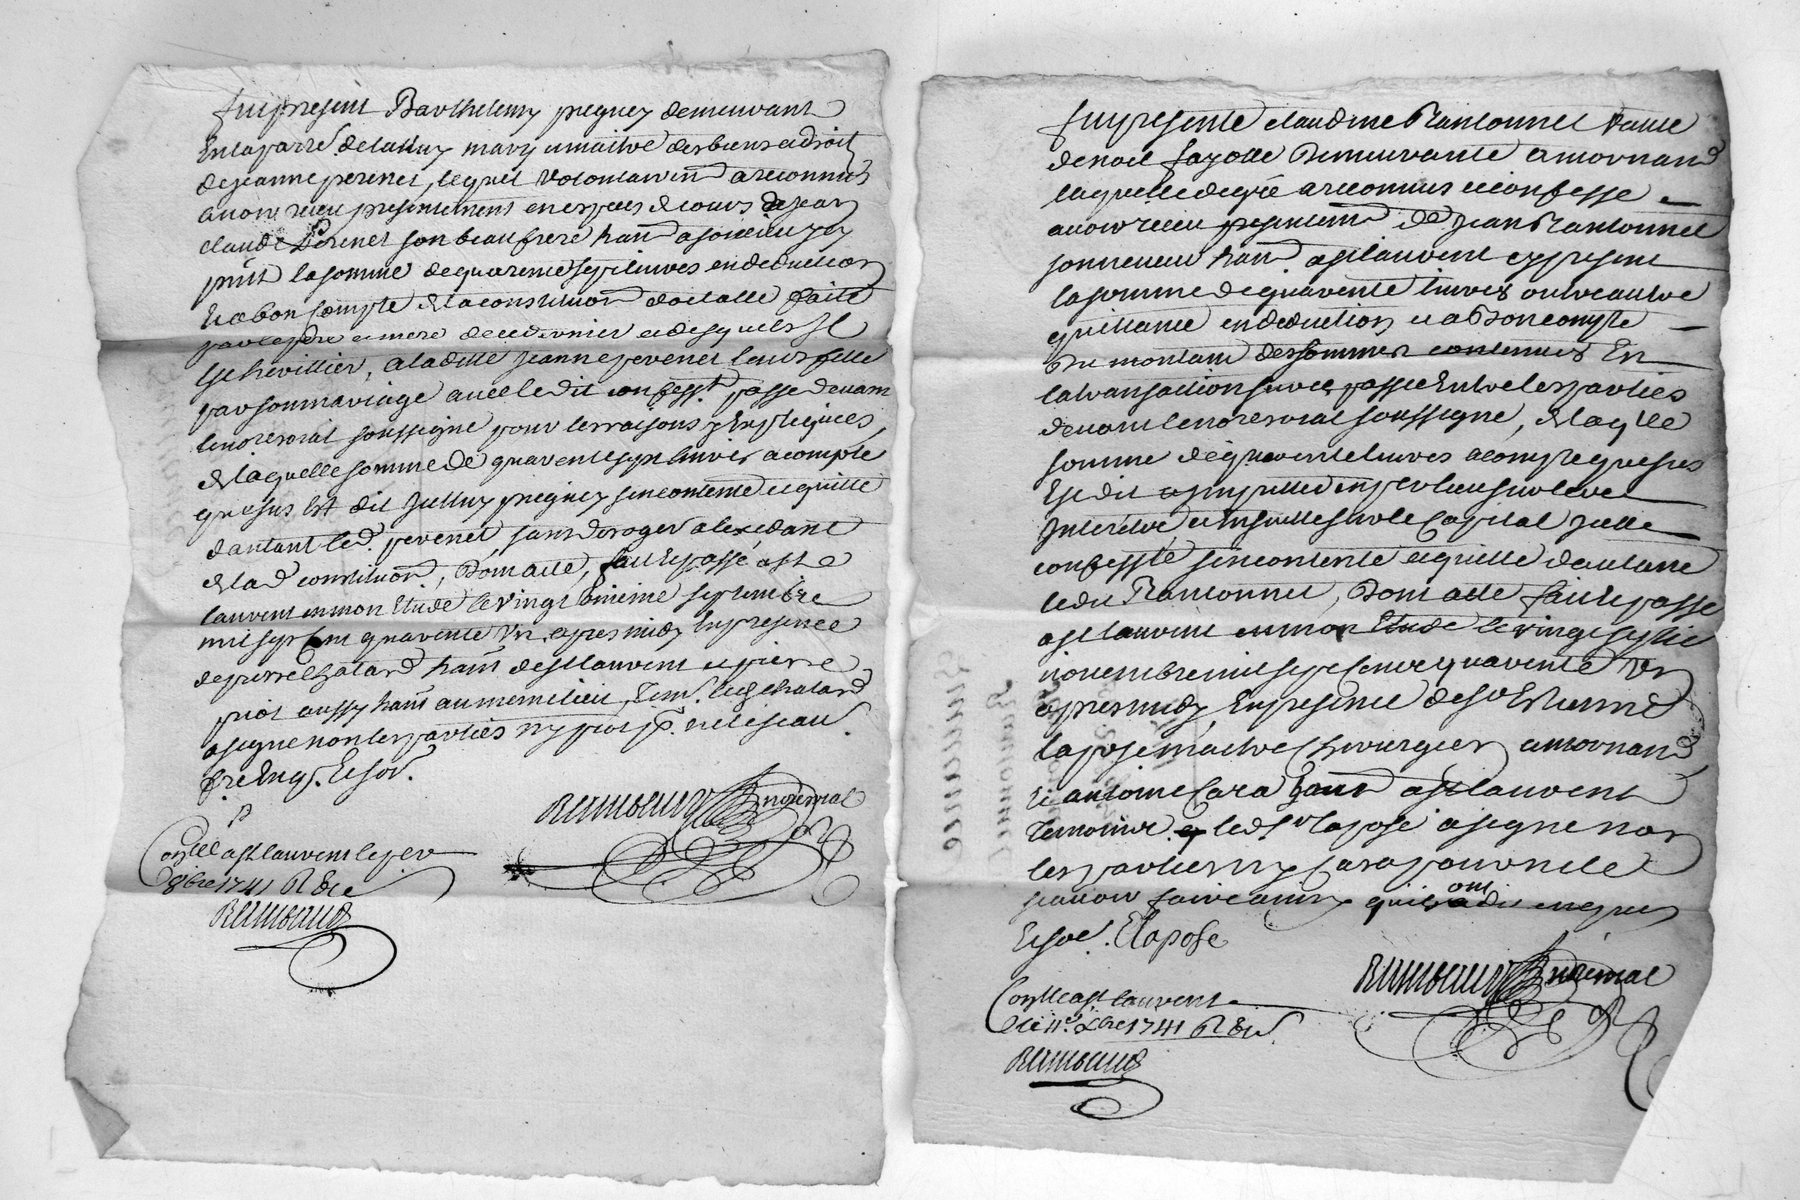 fut present Barthelemy pregney demeurant
En la parre. de taluy mary et maitre des biens et droits
de jeanne perenet, lequel volontairemt. a reconnu
avoir receu presentement en especes de cours de jean
claude perenet son beau frere hant. a
pnt. la somme de quarente sept livres en deduction
Et a bon compte de la constitution dotalle faite
par le pere et mere de ce dernier et desquels Il
Est heritier, a laditte jeanne perenet leur fille
par son mariage avec le dit confesst. passé devant
le nore. royal soussigne pour les raisons y Expliquées,
de laquelle somme de quarente sept livres a compte
que sus Est dit Jelluy pregney sen contente et quitte
dautant led. perenet sans deroger a lexedant
de lad. constitution, Dont acte, fait et passé a st.
laurent en mon Etude le vingt septembre
mil sept Cent quarente Un, apres midy En presence
de pierre Chatard hant. de st laurent et pierre
priot aussy hant. au meme lieu, Temt. led. Chatard
a signé non les parties ny priot p. ne le scavr.
de ce Enqs. Et sor.
Raimbaud nore. royal
Conlle. a st laurent le
8bre 1741 R
Raimbaud
fut presente claudine Ranconnet vauve
de noel fayolle Demeurante a mornand
laquelle de gré a reconnu et confesse
avoir receu presentemt. de jean Ranconnet
son neveu hant. a st laurent cy present
la somme de quarente livres outre autre
quittance en deduction et a Bon compte
Du montant des sommes contenues En
la transaction sur ce, passée Entre les parties
devant le nore royal soussigne, de laqlle
somme de quarente livres a compte que sus
Est dit
Interetz et Ensuitte sur le Capital Jelle
confesste sen contente et quitte dautant
ledit Ranconnet, Dont acte fait et passé
a st laurent en mon Etude le vingt sept
novembre mil sept Cent quarente Un
apres midy, En presence de sr Estienne
lapose maitre Chirurgien a mornand,
Et antoine Cara hant a st laurent
Temoins led. sr lapose a signé non
les parties ny Cara pour ne le
scavoir faire ainsy quils ont dit enquis
Et sor. E lapose
Raimbaud nore. royal
Conlle a st laurent
le 11e. Xbre 1741 R
Raimbaud